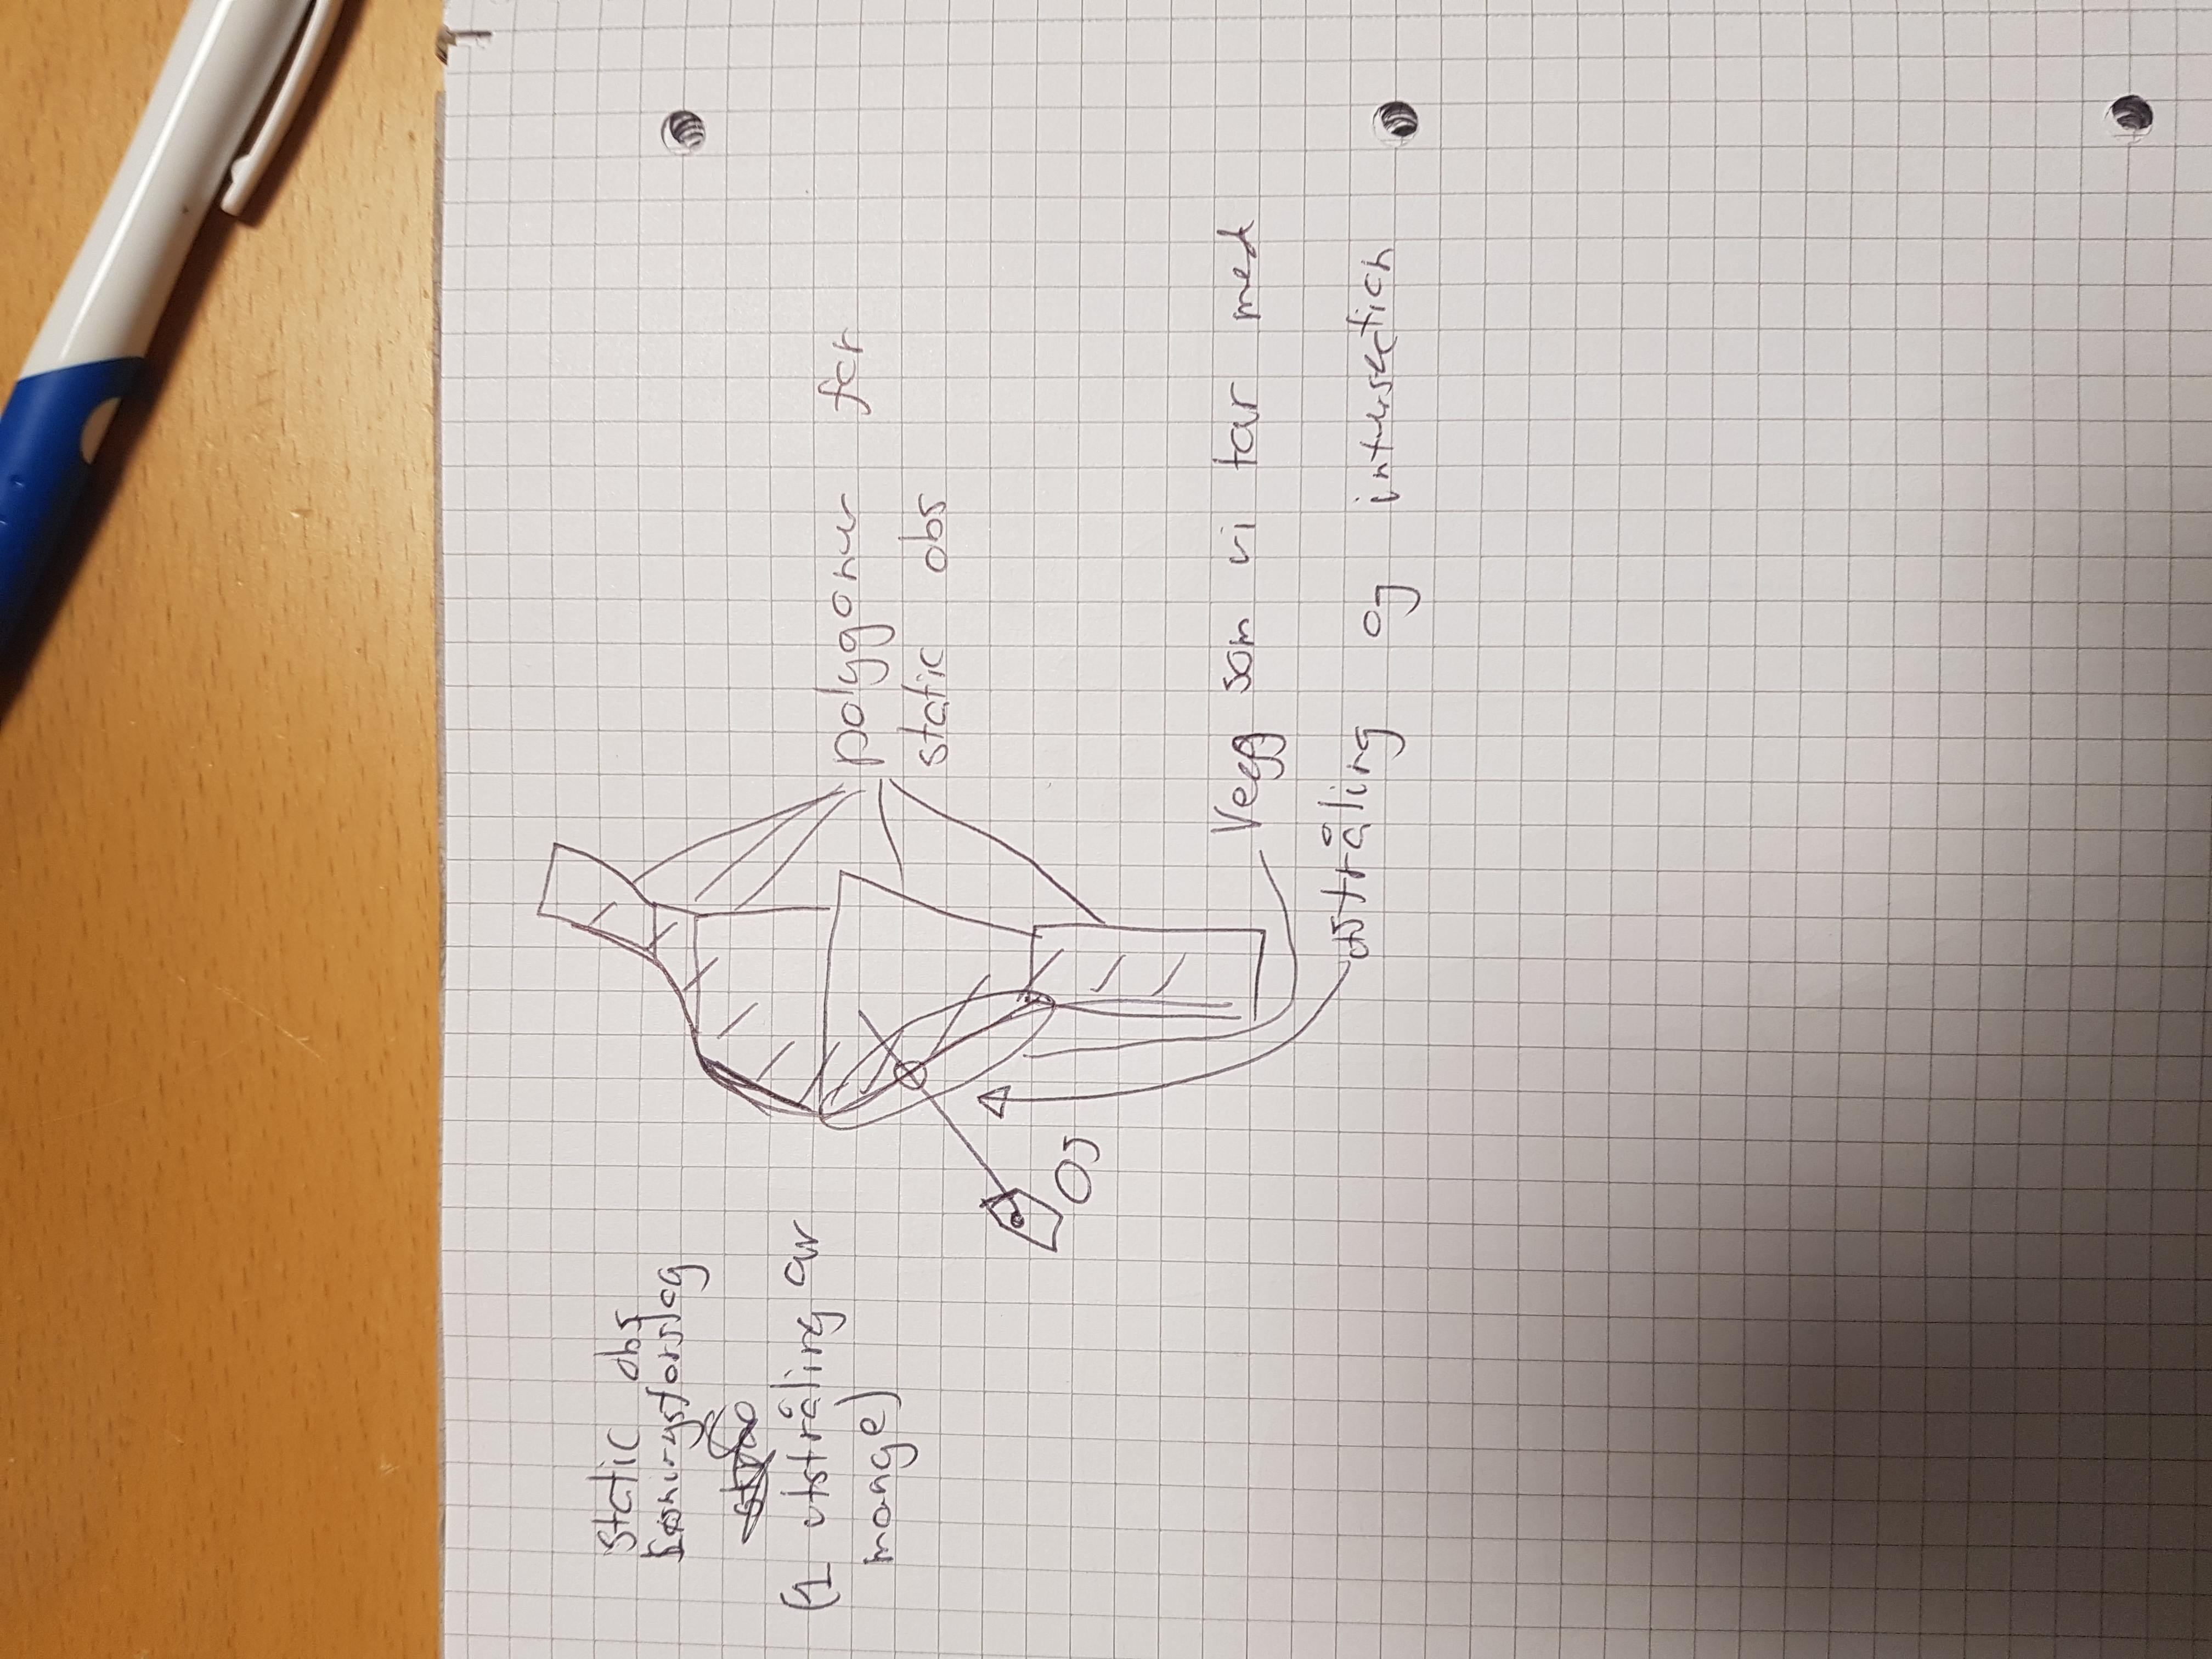 static obs
Løsningsforslag
(1 utstråling av
mange)
polygoner for
static obs
Os
Vegg som vi tar med
utstråling og intersection